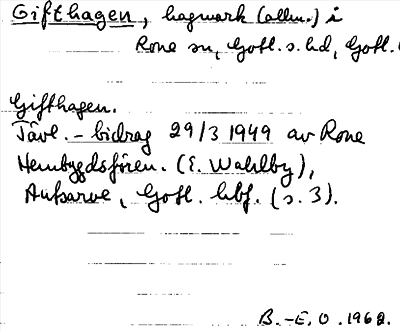 Gifthagen, hagmark (allm.) i
Rone sn, Gotl. s. hd, Gotl.
Gifthagen.
Tävl.-bidrag 29/3 1949 av Rone
Hembygdsfören. (E. Wahlby),
Aufsarve, Gotl. hbf. (s. 3).
B.-E. O. 1968.